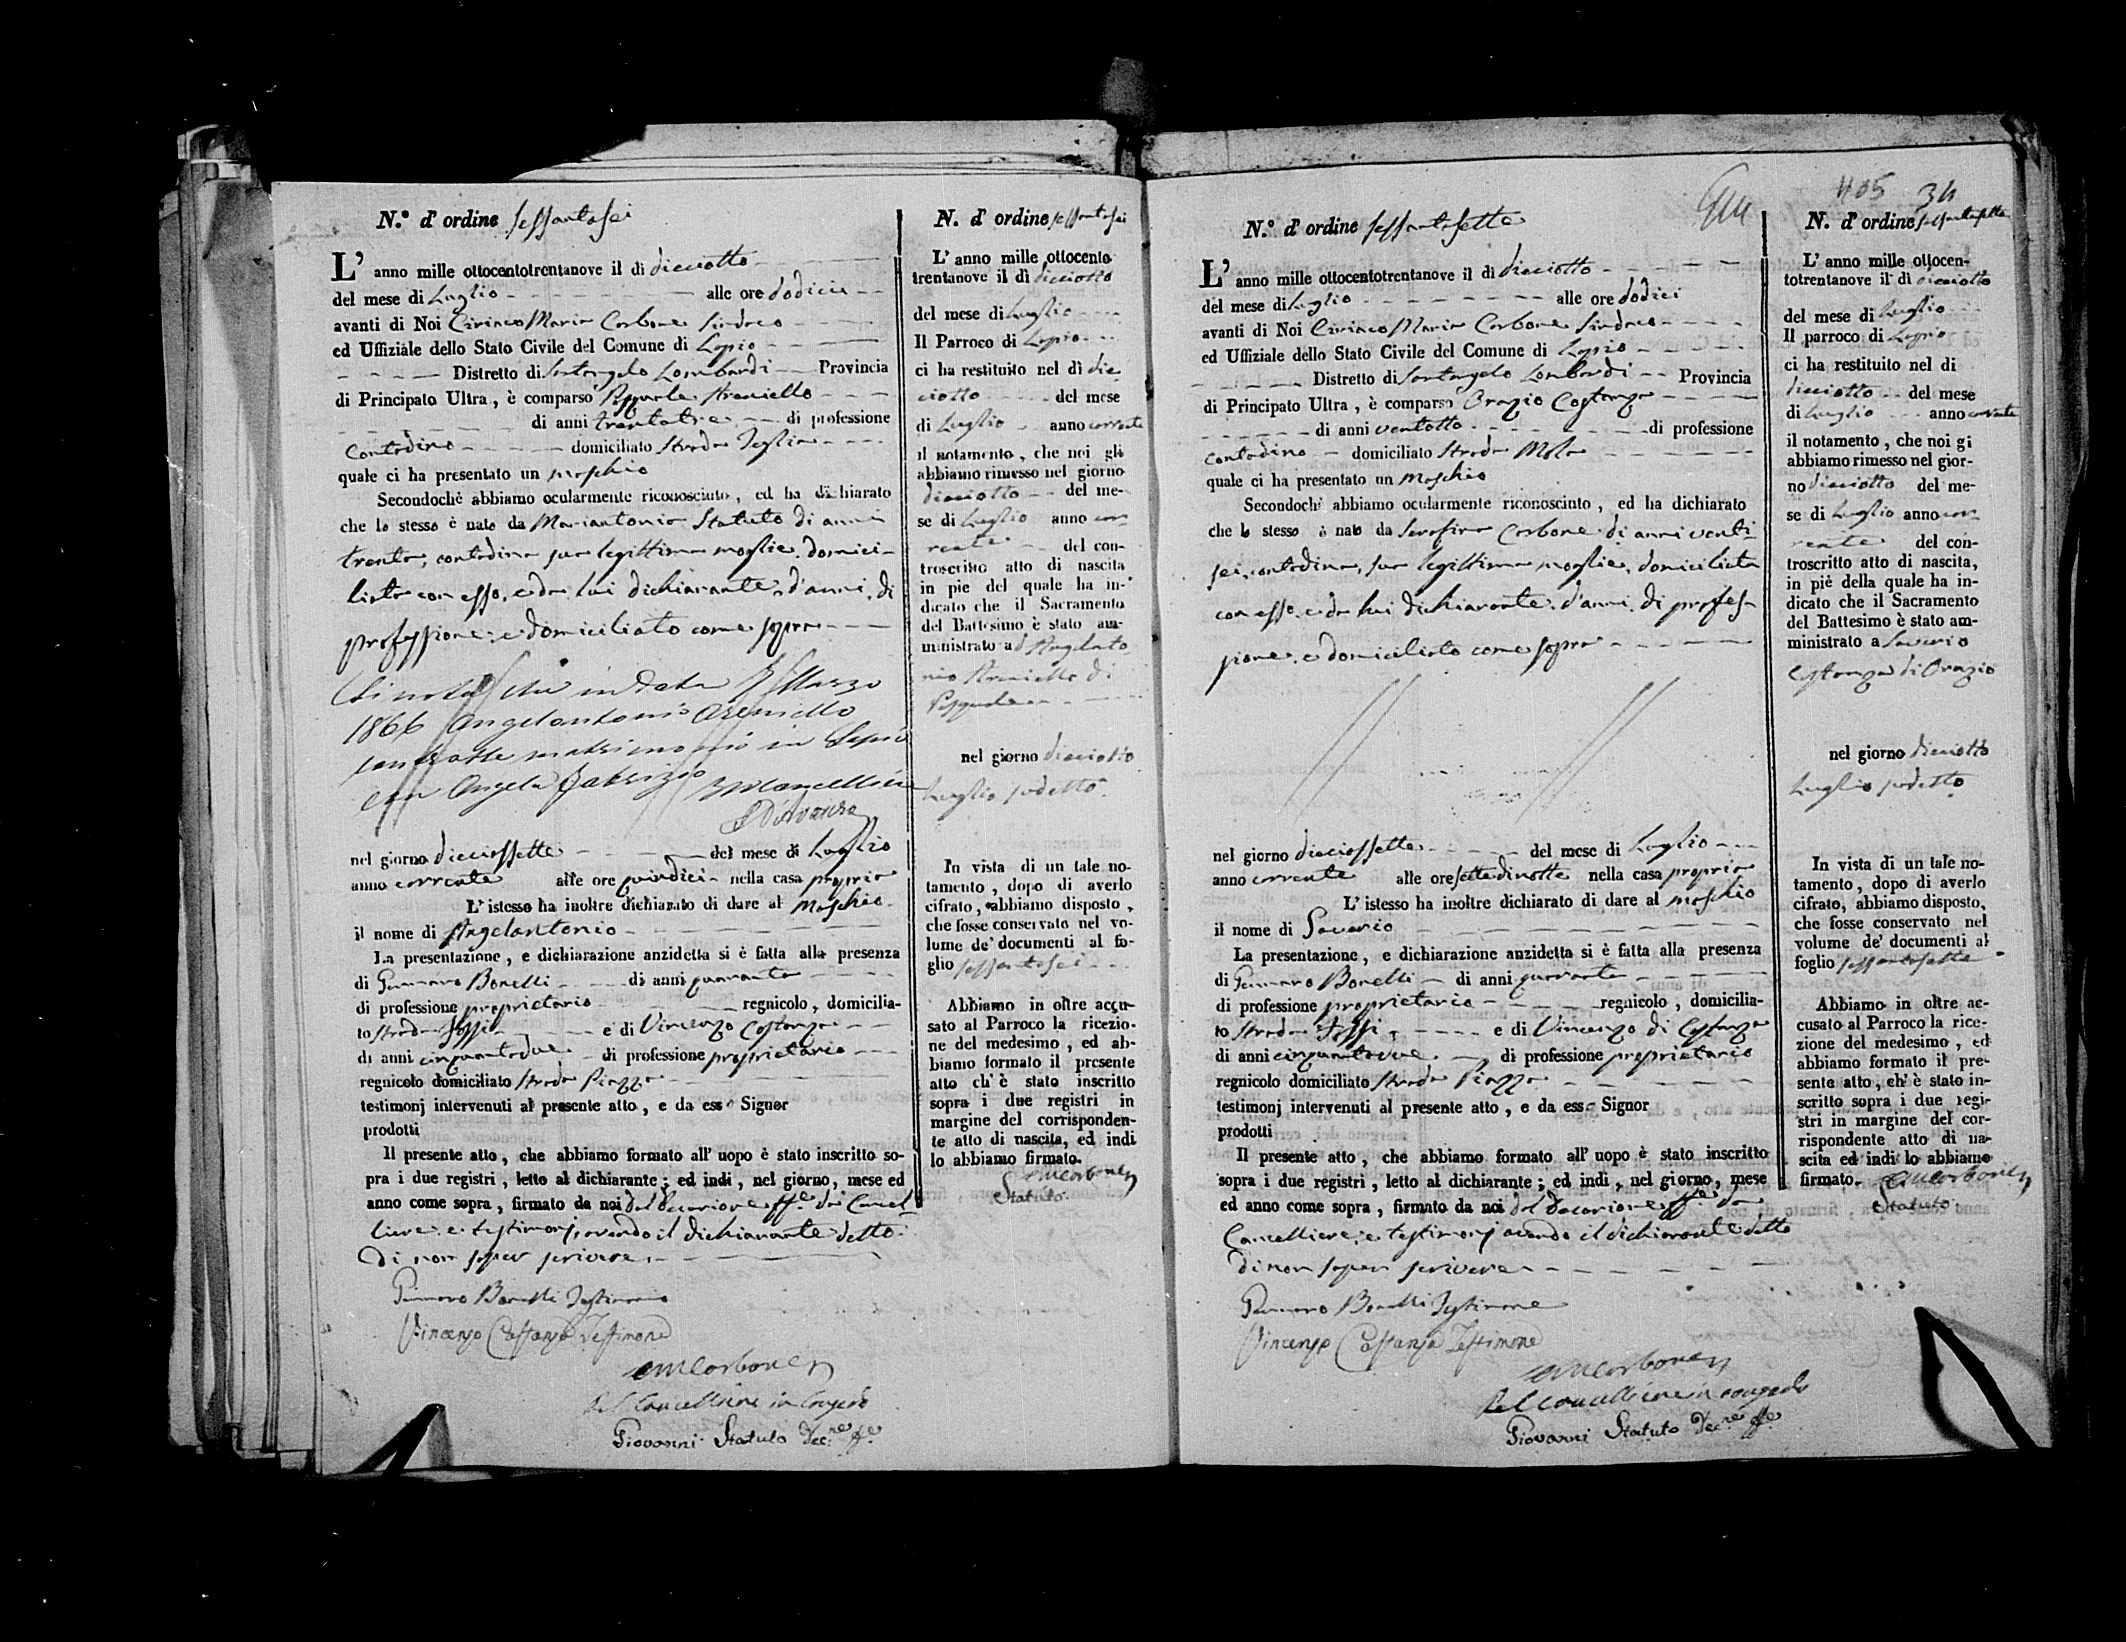 N.º d' ordine sessantasei
L' anno mille ottocentotrentanove il dì dieciotto
del mese di Luglio alle ore dodici
avanti di Noi Ciriaco Maria Carbone Sindaco
ed Uffiziale dello Stato Civile del Comune di Lapio
Distretto di Santangelo Lombardi Provincia
di Principato Ultra, è comparso Pasquale Areniello
di anni trentatre di professione
contadino domiciliato Strada
quale ci ha presentato un maschio
Secondochè abbiamo ocularmente riconosciuto, ed ha dichiarato
che lo stesso è nato da Mariantonia Statuto di anni
trenta, contadina sua legittima moglie, domici-
liata con esso, e da lui dichiarante, d'anni, di
professione, e domiciliato come sopra
Si nota che in data Marzo
1866 Angelantonio Areniello
contrasse matrimonio in Lapio
con Angela Fabrizio
nel giorno dieciassette del mese di Luglio
anno corrente alle ore quindici nella casa propria
L' istesso ha inoltre dichiarato di dare al maschio
il nome di Angelantonio
La presentazione, e dichiarazione anzidetta si è fatta alla presenza
di Gennaro Bonelli di anni quaranta
di professione proprietario regnicolo, domicilia-
to Strada Fossi e di Vincenzo Costanza
di anni cinquantadue di professione proprietario
regnicolo domiciliato Strada Piazza
testimonj intervenuti al presente atto, e da esso Signor
prodotti
Il presente atto, che abbiamo formato all' uopo è stato inscritto so-
pra i due registri, letto al dichiarante; ed indi, nel giorno, mese ed
anno come sopra, firmato da noi dal Decurione ff.e da Cancel-
liere, e testimonj avendo il dichiarante detto
di non saper scrivere
Gennaro Bonelli Testimone
Vincenzo Costanza Testimone
CMCarbone
Pel Cancelliere in congedo
Giovanni Statuto Dec.ne ff.e
N. d' ordine sessantasei
L' anno mille ottocento
trentanove il dì dieciotto
del mese di Luglio
Il Parroco di Lapio
ci ha restituito nel dì die
ciotto del mese
di Luglio anno corrente
il notamento, che noi gli
abbiamo rimesso nel giorno
dieciotto del me-
se di Luglio anno cor
rente del con-
troscritto atto di nascita
in piè del quale ha in-
dicato che il Sacramento
del Battesimo è stato am-
ministrato ad Angelanto
nio Areniello di
Pasquale
nel giorno dieciotto
Luglio sudetto
In vista di un tale no-
tamento, dopo di averlo
cifrato, abbiamo disposto,
che fosse conservato nel vo-
lume de' documenti al fo-
glio sessantasei
Abbiamo in oltre accu-
sato al Parroco la ricezio-
ne del medesimo, ed ab-
biamo formato il presente
atto ch' è stato inscritto
sopra i due registri in
margine del corrisponden-
te atto di nascita, ed indi
lo abbiamo firmato.
CMCarbone
Statuto
405 34
N.º d' ordine sessantasette
L' anno mille ottocentotrentanove il dì dieciotto
del mese di Luglio alle ore dodici
avanti di Noi Ciriaco Maria Carbone Sindaco
ed Uffiziale dello Stato Civile del Comune di Lapio
Distretto di Santangelo Lombardi Provincia
di Principato Ultra, è comparso Orazio Costanza
di anni ventotto di professione
contadino domiciliato Strada Mola
quale ci ha presentato un maschio
Secondochè abbiamo ocularmente riconosciuto, ed ha dichiarato
che lo stesso è nato da Serafina Carbone di anni venti
sei, contadina, sua legittima moglie, domiciliata
con esso, e da lui dichiarante, d'anni, di profes-
sione, e domiciliato come sopra
nel giorno dieciassette del mese di Luglio
anno corrente alle ore sette di notte nella casa propria
L' istesso ha inoltre dichiarato di dare al maschio
il nome di Saverio
La presentazione, e dichiarazione anzidetta si è fatta alla presenza
di Gennaro Bonelli di anni quaranta
di professione proprietario regnicolo, domicilia-
to Strada Fossi e di Vincenzo di Costanza
di anni cinquantadue di professione proprietario
regnicolo domiciliato Strada Piazza
testimonj intervenuti al presente atto, e da esso Signor
prodotti
Il presente atto, che abbiamo formato all' uopo è stato inscritto
sopra i due registri, letto al dichiarante; ed indi, nel giorno, mese
ed anno come sopra, firmato da noi dal Decurione ff.e da
Cancelliere, e testimonj avendo il dichiarante detto
di non saper scrivere
Gennaro Bonelli Testimone
Vincenzo Costanza Testimone
CMCarbone
Pel Cancelliere in congedo
Giovanni Statuto Dec.ne ff.e
N. d' ordine sessantasette
L' anno mille ottocen-
totrentanove il dì dieciotto
del mese di Luglio
Il parroco di Lapio
ci ha restituito nel dì
dieciotto del mese
di Luglio anno corrente
il notamento, che noi gi
abbiamo rimesso nel gior-
no dieciotto del me-
se di Luglio anno cor
rente del con-
troscritto atto di nascita,
in piè della quale ha in-
dicato che il Sacramento
del Battesimo è stato am-
ministrato a Saverio
Costanza di Orazio
nel giorno dieciotto
Luglio sudetto
In vista di un tale no-
tamento, dopo di averlo
cifrato, abbiamo disposto,
che fosse conservato nel
volume de' documenti al
foglio sessantasette
Abbiamo in oltre ac-
cusato al Parroco la rice-
zione del medesimo, ed
abbiamo formato il pre-
sente atto, ch' è stato in-
scritto sopra i due regi-
stri in margine del cor-
rispondente atto di na-
scita ed indi lo abbiamo
firmato. CMCarbone
Statuto